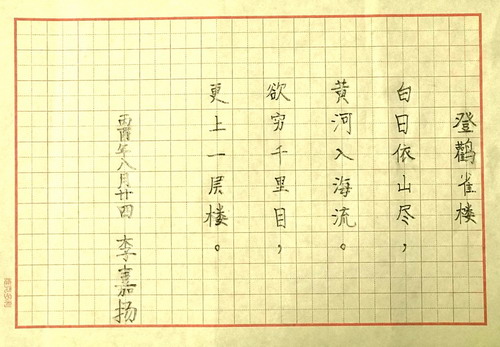 登鹳雀楼
白日依山尽，
黄河入海流。
欲穷千里目，
更上一层楼。
丙酉年八月廿四 李嘉扬